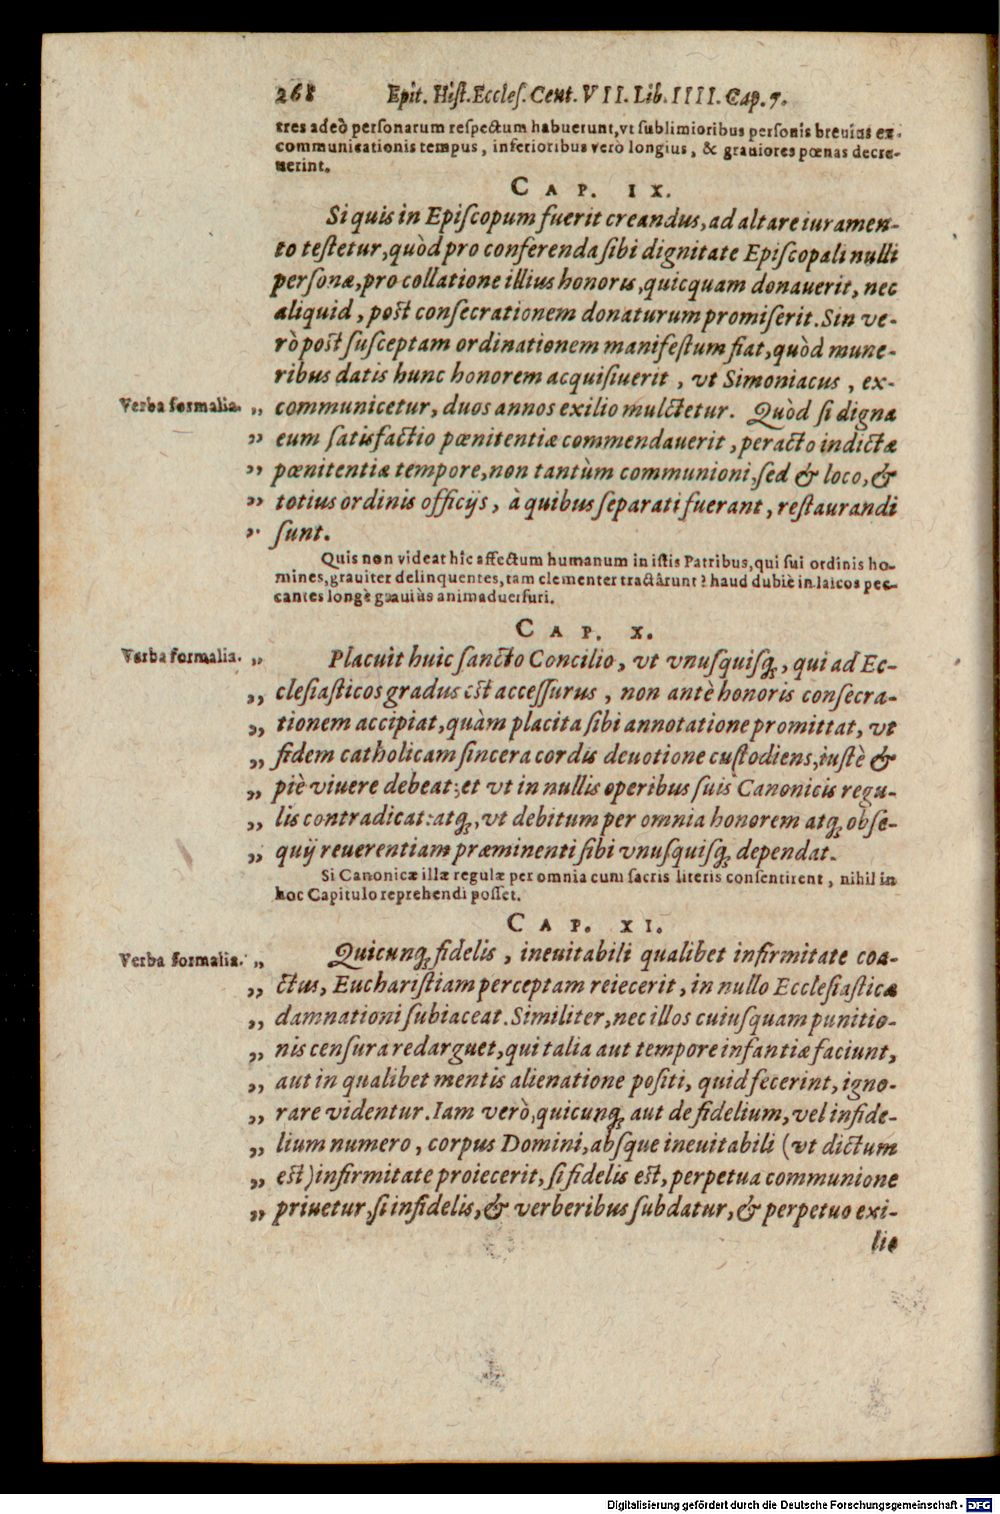 268 Epit. Hist. Eccles. Cent. VII. Lib. IIII. Cap. 7.
tres adeò personarum respectum habuerunt, vt sublimioribus personis breuius ex-
communicationis tempus, inferioribus verò longius, & grauiores pœnas decre-
uerint.
CAP. IX.
Si quis in Episcopum fuerit creandus, ad altare iuramen-
to testetur, quòd pro conferenda sibi dignitate Episcopali nulli
personæ, pro collatione illius honoris, quicquam donauerit, nec
aliquid, post consecrationem donaturum promiserit. Sin ve-
rò post susceptam ordinationem manifestum fiat, quòd mune-
ribus datis hunc honorem acquisiuerit, vt Simoniacus, ex-
Verba formalia. „ communicetur, duos annos exilio mulctetur. Quòd si digna
„ eum satisfactio pœnitentiæ commendauerit, peracto indictæ
„ pœnitentiæ tempore, non tantùm communioni, sed & loco, &
„ totius ordinis officijs, à quibus separati fuerant, restaurandi
„ sunt.
Quis non videat hîc affectum humanum in istis Patribus, qui sui ordinis ho-
mines, grauiter delinquentes, tam clementer tractârunt? haud dubiè in laicos pec-
cantes longè grauiùs animaduersuri.
CAP. X.
Verba formalia. „ Placuit huic sancto Concilio, vt vnusquisq;, qui ad Ec-
„ clesiasticos gradus est accessurus, non antè honoris consecra-
„ tionem accipiat, quàm placita sibi annotatione promittat, vt
„ fidem catholicam sincera cordis deuotione custodiens, iustè &
„ piè viuere debeat: et vt in nullis operibus suis Canonicis regu-
„ lis contradicat: atq;, vt debitum per omnia honorem atq; obse-
„ quij reuerentiam præminenti sibi vnusquisq; dependat.
Si Canonicæ illæ regulæ per omnia cum sacris literis consentirent, nihil in
hoc Capitulo reprehendi posset.
CAP. XI.
Verba formalia. „ Quicunq; fidelis, ineuitabili qualibet infirmitate coa-
„ ctus, Eucharistiam perceptam reiecerit, in nullo Ecclesiasticæ
„ damnationi subiaceat. Similiter, nec illos cuiusquam punitio-
„ nis censura redarguet, qui talia aut tempore infantiæ faciunt,
„ aut in qualibet mentis alienatione positi, quid fecerint, igno-
„ rare videntur. Iam verò, quicunq; aut de fidelium, vel infide-
„ lium numero, corpus Domini, absque ineuitabili (vt dictum
„ est) infirmitate proiecerit, si fidelis est, perpetua communione
„ priuetur, si infidelis, & verberibus subdatur, & perpetuo exi-
lio
Digitalisierung gefördert durch die Deutsche Forschungsgemeinschaft - DFG